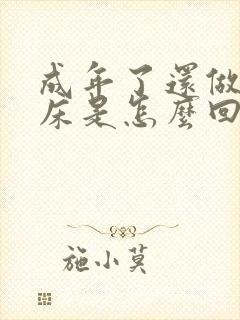 成年了還做
床是怎麼回
施小莫